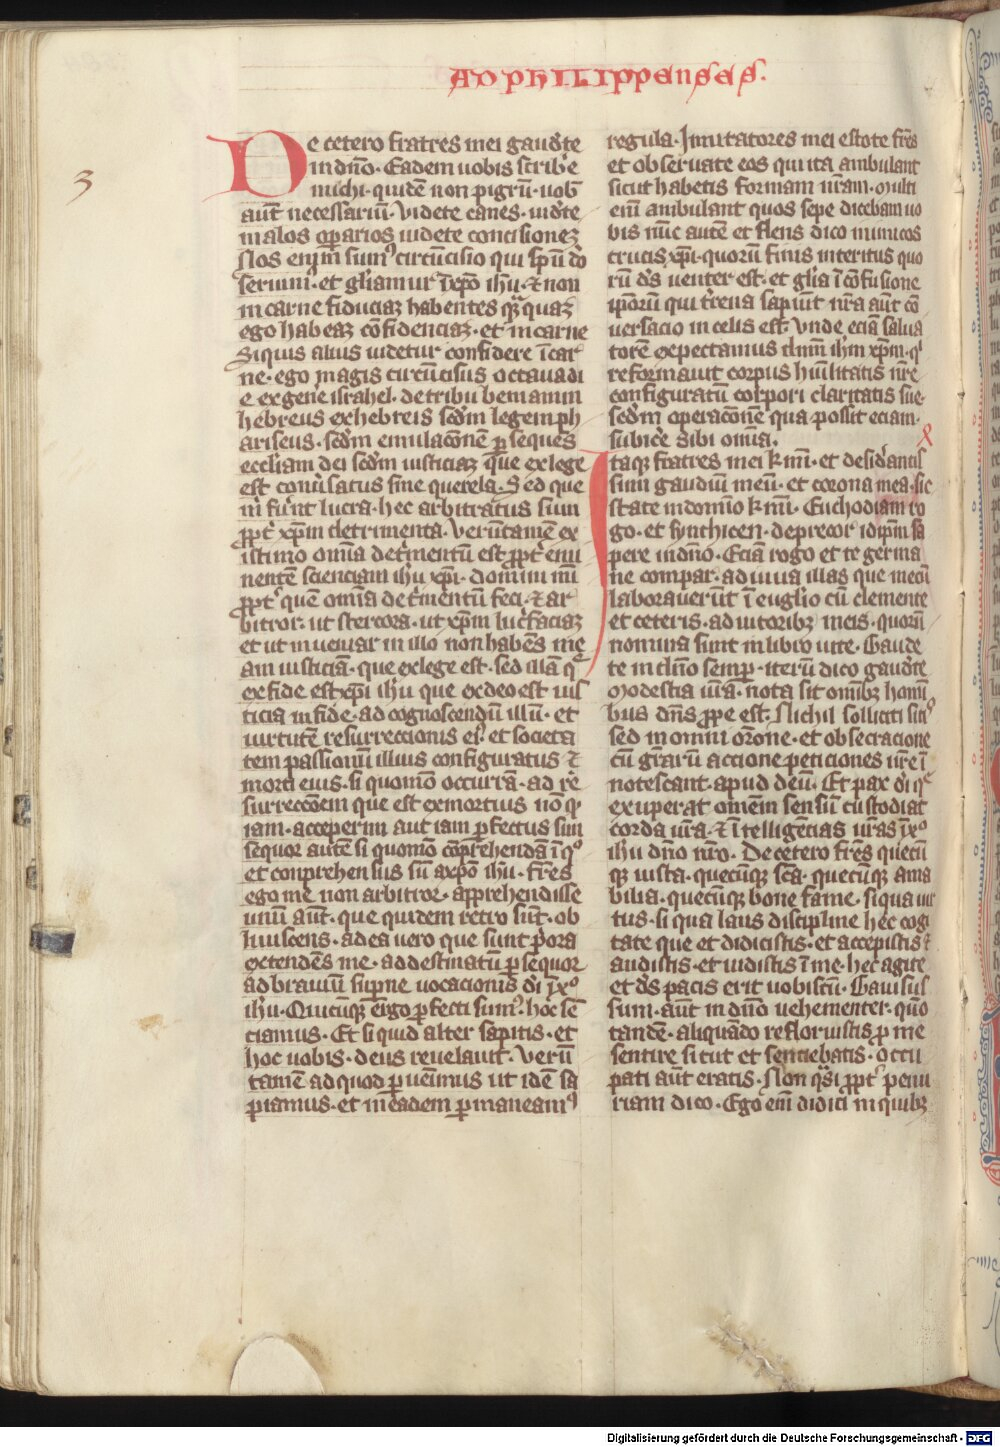 AD PHILIPPENSES.
3
De cetero fratres mei gaudete
in dño. Eadem uobis scribe
michi. quidē non pigrū. uob̄
aut̄ necessariū. Videte canes. uidete
malos opparios uidete concisionez
Nos enim sumꝰ circūcisio qui spū dō
seruim. et gl̄iamur ī xp̄o ih̄u. ⁊ non
in carne fiduciaz habentes qͣ̄quaz
ego habeaz cōfidenciaz. et in carne
Siquis alius uidetur confidere ī car
ne. ego magis circūcisus octaua di
e ex gen̄e israhel. de tribu beniamin
hebreus ex hebreis scd̄m legem ph
ariseus. scd̄m emulacōnē ꝑsequēs
eccl̄iam dei scd̄m iusticiaz que ex lege
est conu̓satus sine querela. Sed que
m̄ fuer̄nt lucra. hec arbitratus sum
ꝓpt̓ xp̄m detrimenta. Verūtamē ex
istimo om̄ia det̓mentū est ꝓpt̓ emi
nentē scienciam ih̄u xp̄i. domini mī
ꝓpt̓ quē om̄ia det̓mentū feci. ⁊ ar
bitror. ut stercora. ut xp̄m luc̓faciaz
et ut inueniar in illo non habēs me
am iusticiā. que ex lege est. sed illā q̄
ex fide est xp̄i ih̄u que ex deo est ius
ticia in fide. ad cognoscendū illū. et
uirtutē resurreccionis eiꝰ. et societa
tem passionū illius configuratus ⁊
morti eius. si quomō occurrā. ad re
surreccōem que est ex mortuis nō qͥ
iam. acceperim aut iam ꝑfectus sim
sequor autē si quomō cōprehendā ī qͦ
et conprehensus sū a xpō ih̄u. fr̄es
ego me non arbitror. apprehendisse
unū aut̄. que quidem retro sūt. ob
liuiscens. ad ea uero que sunt p̓ora
extendēs me. ad destinatū ꝑsequor
ad brauiū sup̓ne uocacionis dī ī xͦ
ih̄u. Quicūqꝫ ērgo ꝑfecti sumꝰ. hoc sē
ciamus. Et si quid alter sapitis. et
hoc uobis. deus reuelauit. Verū
tamē ad quod ꝑuēimus ut idē sa
piamus. et in eadem ꝑmaneamꝰ
regula. Imitatores mei estote fr̄es
et obseruate eos qui ita ambulant
sicut habetis formam nr̄am. multi
eiū ambulant quos sepe dicebam uo
bis nūc autē et flens dico inimicos
crucis xp̄i. quorū finis interitus quo
rū d̄s uenter est. et gl̄ia ī cōfusione
ip̄orū qui t̓rena sapiūt nr̄a aūt cō
uersacio in celis est. Vnde eciā salua
torē expectamus dn̄m ih̄m xp̄m. qͥ
reformauit corpus hūilitatis nr̄e
configuratū corpori claritatis sue.
scd̄m operacōnē qua possit eciam.
subic̓e sibi om̄ia.
Itaqꝫ fratres mei kmī. et desid̓antis
simi gaudiū meū. et corona mea. sic
state in domīo kmī. Euchodiam ro
go. et synthicen. deprecor id ip̄m sa
pere in dn̄o. Eciā rogo et te germa
ne compar. adiuua illas que mecū
laborauer̄ūt ī euglīo cū clemente
et ceteris. adiutoribꝫ meis. quorū
nomina sunt in libro uite. Gaude
te in dn̄o semꝑ. iterū dico gaudete
Modestia ur̄a. nota sit om̄ibꝫ homī
bus dn̄s ꝓpe est. Nichil solliciti sitꝭ
sed in omni or̄one. et obsecracione
cū gr̄arū accione peticiones ur̄e ī
notescant. apud deū. Et pax dī qͤ
exuperat om̄em sensū custodiat
corda ur̄a. ⁊ ītelligēcias ur̄as ī xͦ
ih̄u dn̄o nr̄o. De cetero fr̄es quecū
qꝫ iusta. quecūqꝫ sc̄a. quecūqꝫ ama
bilia. quecūqꝫ bone fame. siqua uir
tus. si qua laus discipline hec cogi
tate que et didicistis. et accepistis ⁊
audistis. et uidistis ī me. hec agite
et d̄s pacis erit uobiscū. Gauisus
sum. aūt in dn̄o uehementer. quō
tandē. aliquādo refloruistis ꝓ me
sentire sicut et sentiebatis. occu
pati aūt eratis. Non qͣsi ꝓpt̓ penu
riam dico. Ego eiū didici in quibꝫ
Digitalisierung gefördert durch die Deutsche Forschungsgemeinschaft - DFG